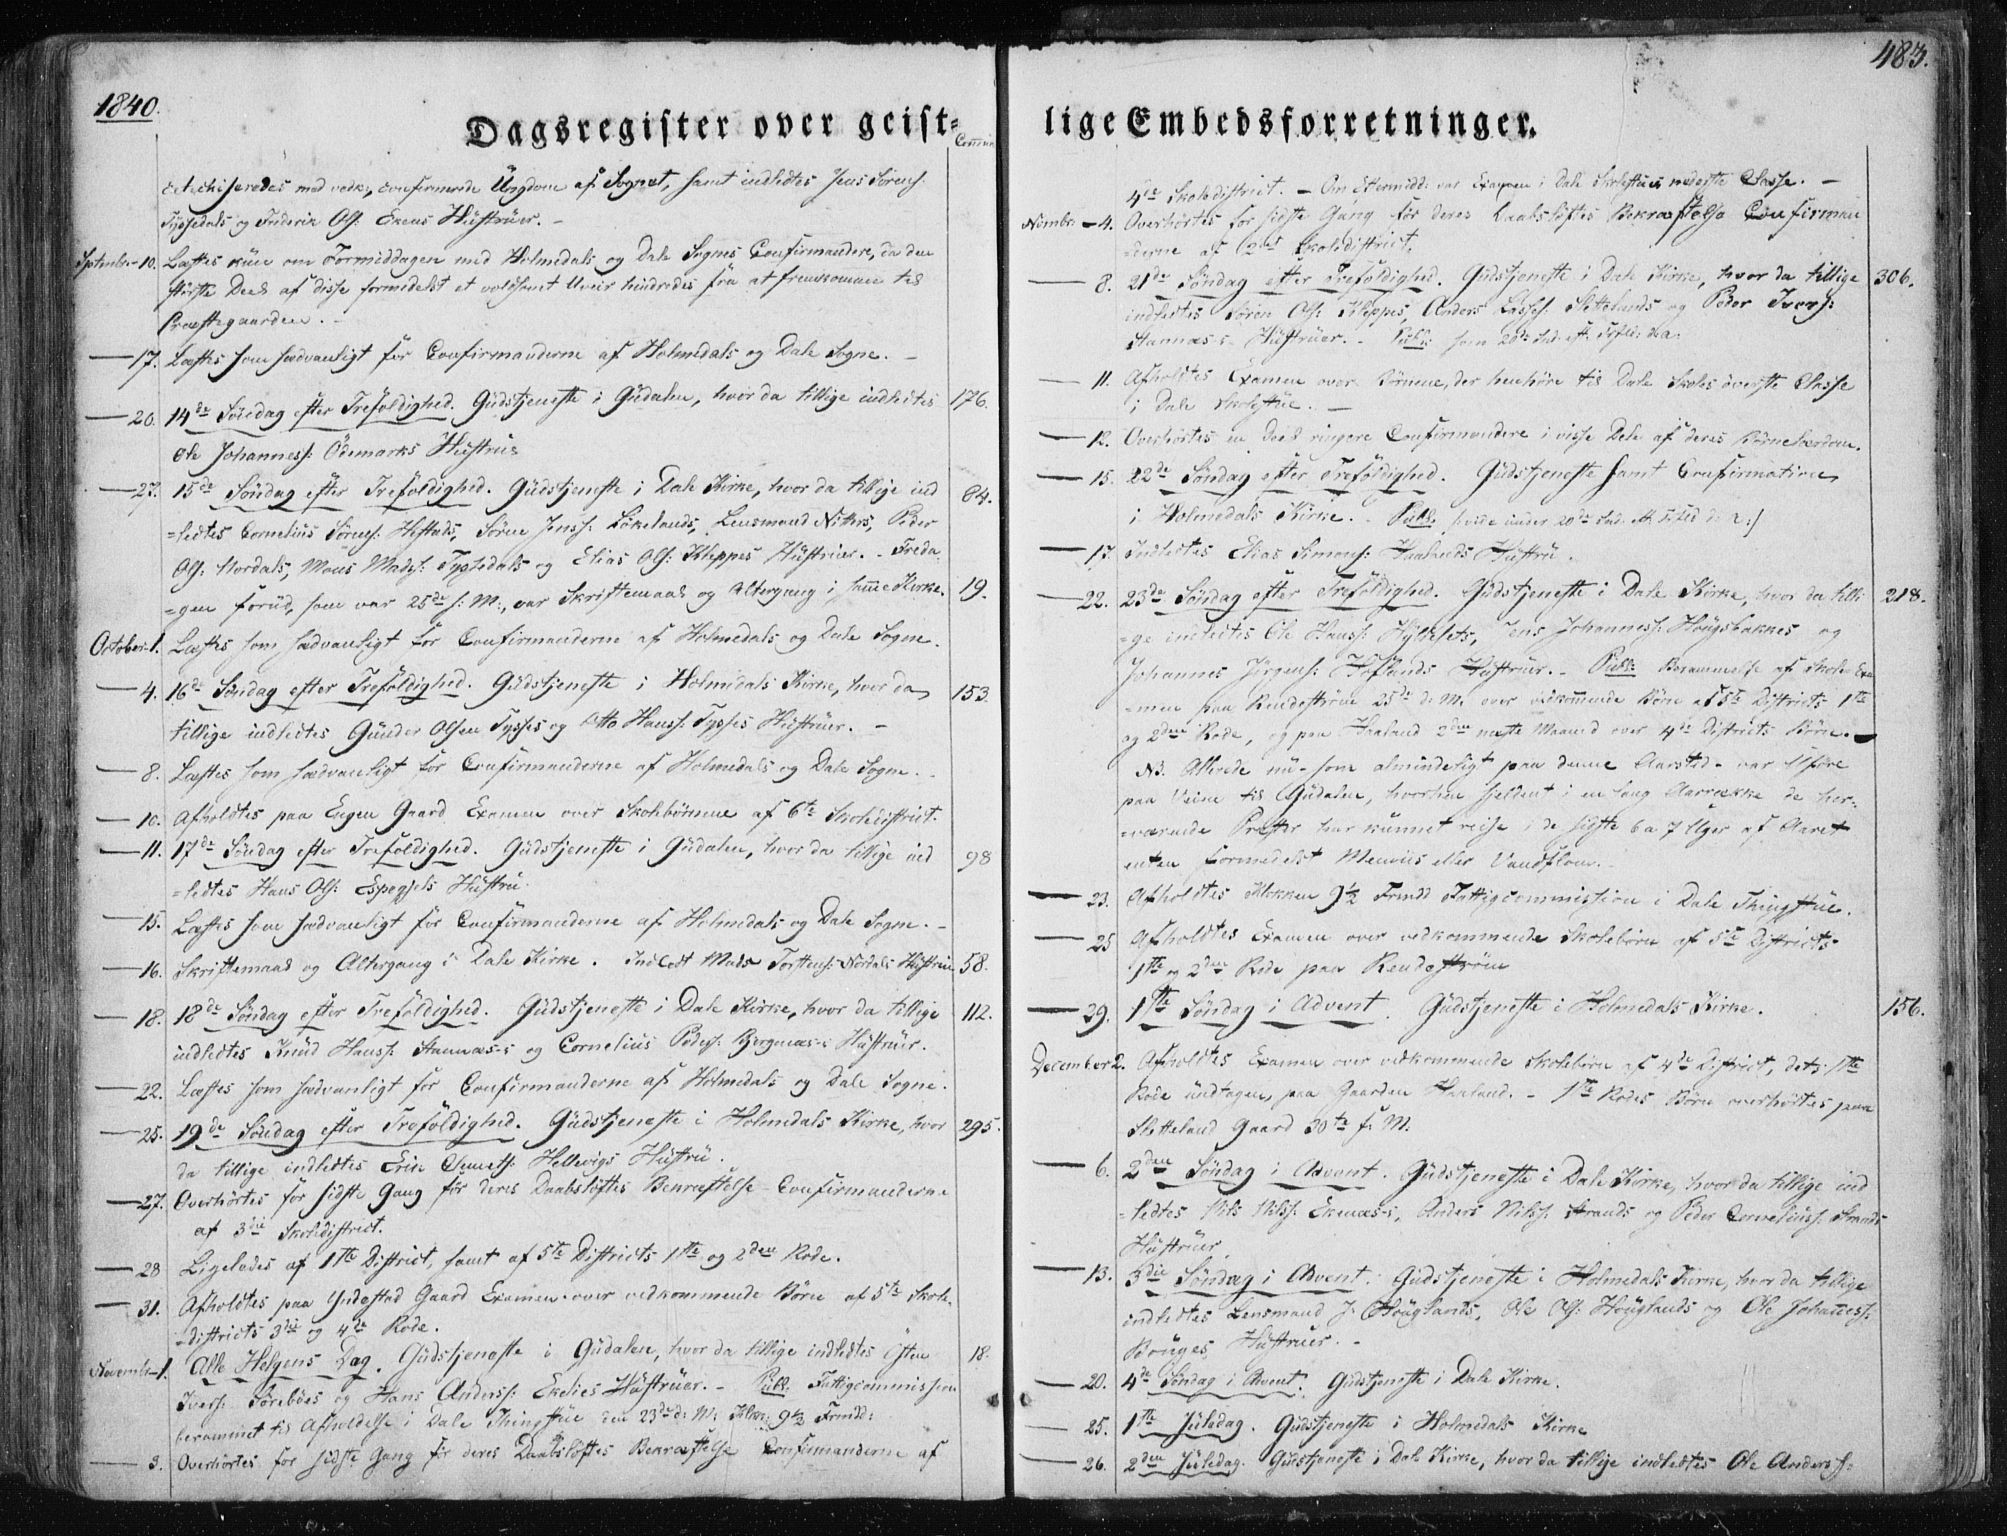 1840.
Dagsregister over geist=
Commun
catechiseredes med vedk: confirmerede Ungdom af Sognet, samt indledtes Jens Sörens:
Tyssedals og Frederik Ols: Ekens Hüstrüer. -
September-10. Læstes kün om Formiddagen med Holmedals og Dale Sognes Confirmandere, da den
störste Deel af disse formedelst et voldsomt Uveir hindredes fra at fremkomme til
Præstegaarden. -
17. Læstes som sædvanligt for Confirmanderne af Holmedals og Dale Sogne. -
20. 14de Söndag efter Trefoldighed. Güdstjeneste i Güdalen, hvor da tillige indledtes 176.
Ole Johanness: Ödemarks Hüstrüe
27. 15de Söndag efter Trefoldighed. Güdstjeneste i Dale Kirke, hvor da tillige ind 84.
=ledtes Cornelius Sörens: Hestads, Sören Jenss: Lökelands, Lensmand Nitters, Peder
Ols: Nordals, Mons Madss: Tyssedals og Elias Ols: Kleppes Hüstrüer. - Freda
=gen forud, som var 25de s: M:, var Skriftemaal og Altergang i samme Kirke. 19.
October-1. Læstes som sædvanligt for Confirmanderne af Holmedals og Dale Sogne.
4. 16de Söndag efter Trefoldighed. Güdstjeneste i Holmedals Kirke, hvor da 153.
tillige indledtes Günder Olsen Tysses og Otto Hanss: Tysses Hüstrüer. -
8. Læstes som sædvanligt for Confirmanderne af Holmedals og Dale Sogne. -
10. Afholdtes paa Eugen Gaard Examen over Skolebörnene af 6te Skoledistrict.
11. 17de Söndag efter Trefoldighed. Güdstjeneste i Güdalen, hvor da tillige ind 98
=ledtes Hans Ols: Espegjels Hüstrü.
15. Læstes som sædvanligt for Confirmanderne af Holmedals og Dale Sogne. -
16. Skriftemaal og Altergang i Dale Kirke. Indledt Mads Torstens: Nordals Hüstrüe 58.
18. 18de Söndag efter Trefoldighed. Güdstjeneste i Dale Kirke, hvor da tillige 112.
indledtes Knüd Hanss: Stannæs-s og Cornelius Peders: Bergmæs-s Hüstrüer.
22. Læstes som sædvanligt for Confirmanderne af Holmedals og Dale Sogne.
25. 19de Söndag efter Trefoldighed. Güdstjeneste i Holmedals Kirke, hvor 295.
da tillige indledtes Erik Hellevigs Hüstrü.
27. Overhörtes for sidste Gang för deres Daabslöftes Bekræftelse Confirmanderne
af 3die Skoledistrict.
28 Ligeledes af 1ste District, samt af 5te Districts 1ste og 2den Rode.
31. Afholdtes paa Yndestad Gaard Examen over vedkommende Börn af 5te Skole-
=districts 3die og 4de Rode.
November-1. Alle Helgens Dag. Güdstjeneste i Güdalen, hvor da tillige indledtes Östen 18.
Ivers: Sörebös og Hans Anderss: Ekelies Hüstrüer. - Publ: Fattigcommission
berammet til Afholdelse i Dale Thingstüe den 23de d: M: Klok: 9½ Formdd:
3. Overhörtes for sidste Gang för deres Daabslöftes Bekræftelse Confirmanderne af
483.
lige Embedsforretninger.
4de Skoledistrict. - Om Eftermidd: var Examen i Dale Skolestues nederste Classe. -
Novembr. - 4. Overhörtes for sidste Gang för deres Daabslöftes Bekræftelse Confirman
=derne af 2det Skoledistrict.
8. 21de Söndag efter Trefoldighed. Güdstjeneste i Dale Kirke, hvor da tillige 306.
indledtes Sören Ols: Kleppes, Anders Lasses: Slettelands og Peder Ivers:
Stannæs-s Hüstrüer. - Publ: som 20de Sönd. eft. Trefold: d. a.
11. Afholdtes Examen over Börnene, der henhöre til Dale Skoles överste Classe
i Dale Skolestüe. -
12. Overhörtes en Deel ringere Confirmandere i visse Dele af deres Börnelærdom.
15. 22de Söndag efter Trefoldighed. Güdstjeneste samt Confirmation
i Holmedals Kirke. - Publ: (: vide under 20de Sönd. eft. Trefold d: a :)
17. Indledtes Elias Simons: Haalands Hüstrü.
22. 23de Söndag efter Trefoldighed. Güdstjeneste i Dale Kirke, hvor da tilli= 218.
=ge indledtes Ole Hanss: Hyllesets, Jens Johanness: Höugsbakkes og
Johannes Jörgens: Hoflands Hüstrüer. - Publ: Berammelse af Skole-Exa
=men paa Rendeström 25de d: M. over vedkommende Börn af 5te Districts 1ste
og 2den Rode, og paa Haaland 2den næste Maaned over 4de Districts Börn. -
NB. Allerede nü - som almindeligt paa denne Aarstid - var Uföre
paa Veiene til Güdalen, hvorhen sjeldent i en lang Aarrække de her=
=værende Præster har künnet reise i de sidste 6 a 7 Uger af Aaret
enten formedelst Menniis eller Vandflom. -
23. Afholdtes Klokken 9½ Formdd Fattigcommission i Dale Thingstüe.
25 Afholdtes Examen over vedkommende Skolebörn af 5te Districts
1ste og 2den Rode paa Rendeström
29. 1ste Söndag i Advent. Güdstjeneste i Holmedals Kirke. 156.
December 2. Afholdtes Examen over vedkommende Skolebörn af 4de District, dets 1ste
Rode undtagen, paa Gaarden Haaland. - 1ste Rodes Börn overhörtes paa
Sletteland Gaard 30te f. M.
6. 2den Söndag i Advent. Güdstjeneste i Dale Kirke, hvor da tillige ind
=ledtes Nils Nilss: Ekenæs-s, Anders Nilss: Strands og Peder Corneliuss: Strands
Hüstrüer.
13. 3die Söndag i Advent. Güdstjeneste i Holmedals Kirke, hvor da tillige
indledtes Lensmand J. Höuglands, Ole Ols: Höuglands og Ole Johanness:
Böuges Hüstrüer. -
20. 4de Söndag i Advent. Güdstjeneste i Dale Kirke.
25. 1ste Jüledag. Güdstjeneste i Holmedals Kirke
26. 2den Jüledag. Güdstjeneste i Dale Kirke, hvor da tillige indledtes Ole Anderss=